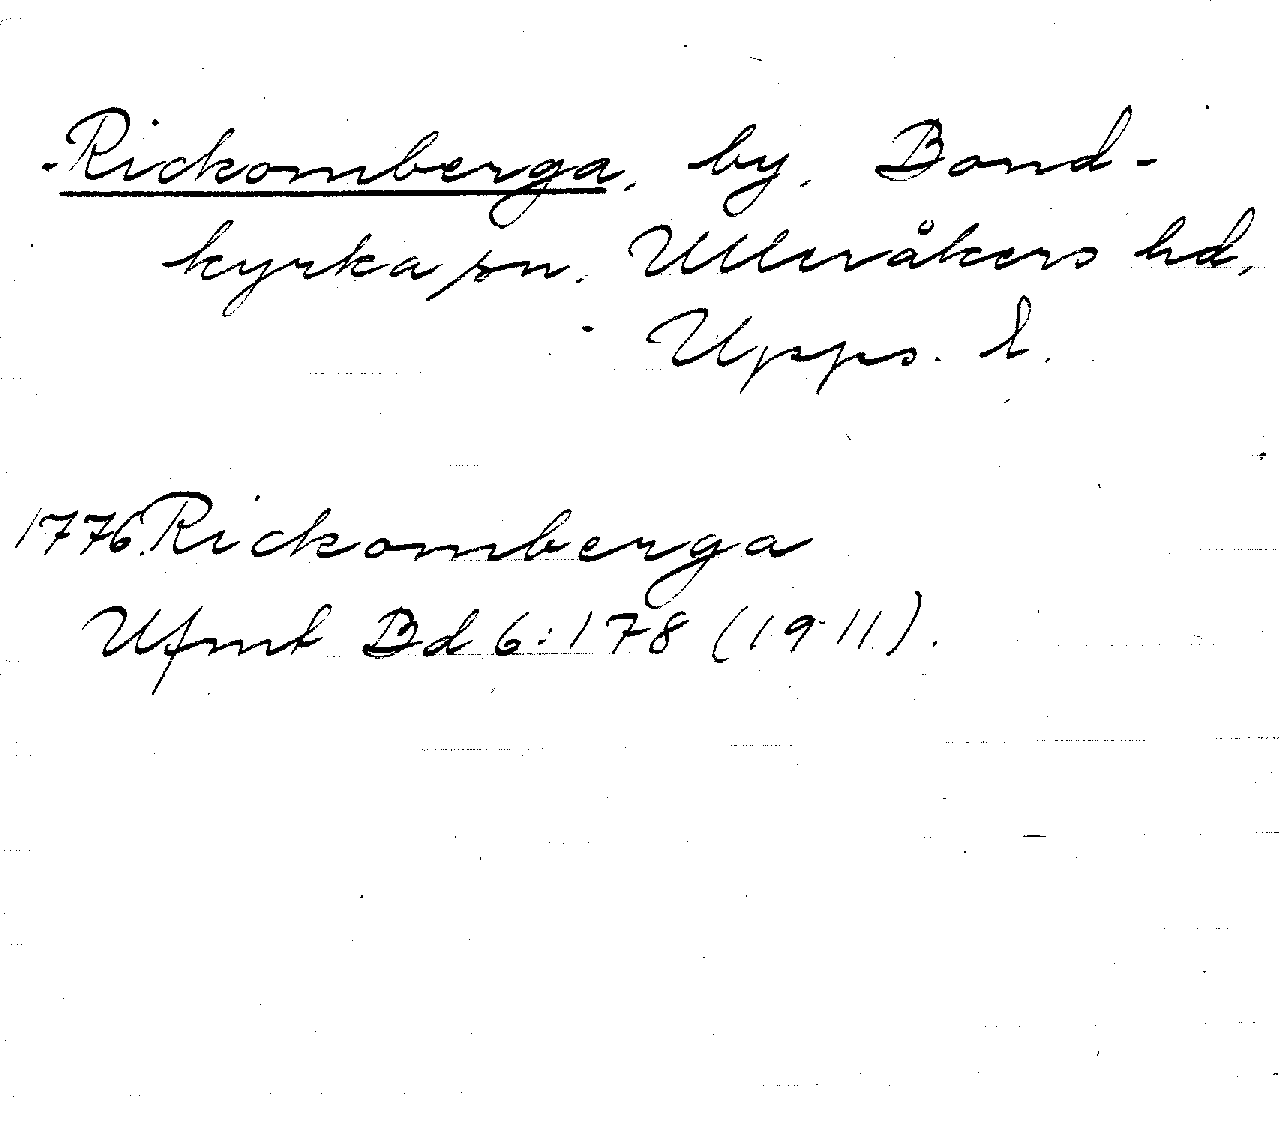 Rickomberga, by, Bond-
kyrka sn, Ulleråkers hd,
Upps. l.
1776 Rickomberga
Ufmt Bd 6:178 (1911).